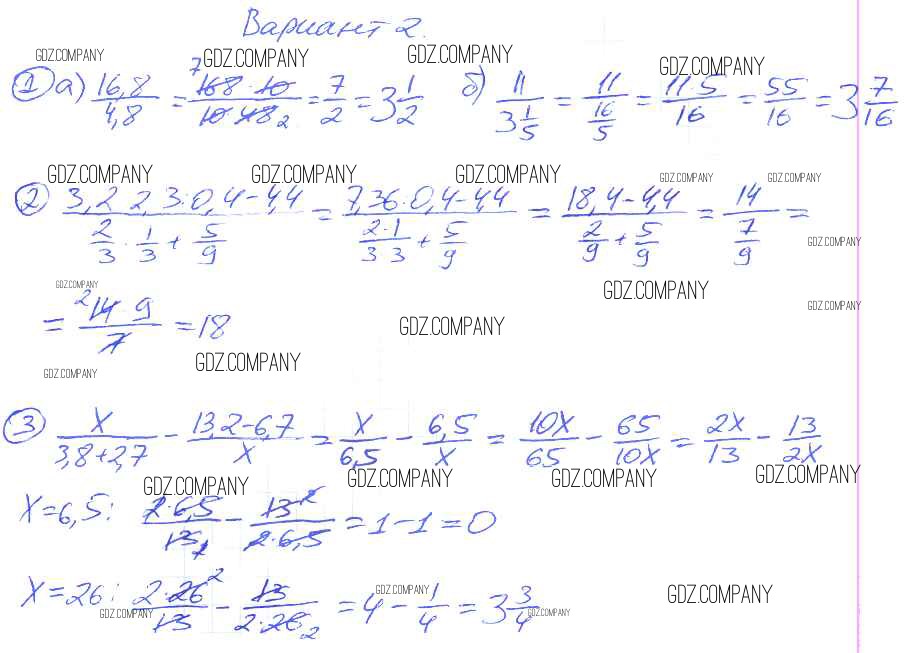 Вариант 2.
GDZ.COMPANY GDZ.COMPANY GDZ.COMPANY GDZ.COMPANY
① а) 16,8/4,8 = 168·10/10·48 = 7/2 = 3 1/2 б) 11/(3 1/5) = 11/(16/5) = 11·5/16 = 55/16 = 3 7/16
GDZ.COMPANY GDZ.COMPANY GDZ.COMPANY GDZ.COMPANY GDZ.COMPANY
② (3,2·2,3·0,4-4,4)/(2/3·1/3+5/9) = (7,36·0,4-4,4)/(2·1/3·3+5/9) = (18,4-4,4)/(2/9+5/9) = 14/(7/9) =
GDZ.COMPANY
GDZ.COMPANY GDZ.COMPANY
GDZ.COMPANY
= 14·9/7 = 18
GDZ.COMPANY
GDZ.COMPANY
GDZ.COMPANY
③ x/(3,8+2,7) - (13,2-6,7)/x = x/6,5 - 6,5/x = 10x/65 - 65/10x = 2x/13 - 13/2x
GDZ.COMPANY GDZ.COMPANY GDZ.COMPANY GDZ.COMPANY
x=6,5: 2·6,5/13 - 13/2·6,5 = 1-1 = 0
x=26: 2·26/13 - 13/2·26 = 4 - 1/4 = 3 3/4
GDZ.COMPANY GDZ.COMPANY GDZ.COMPANY GDZ.COMPANY